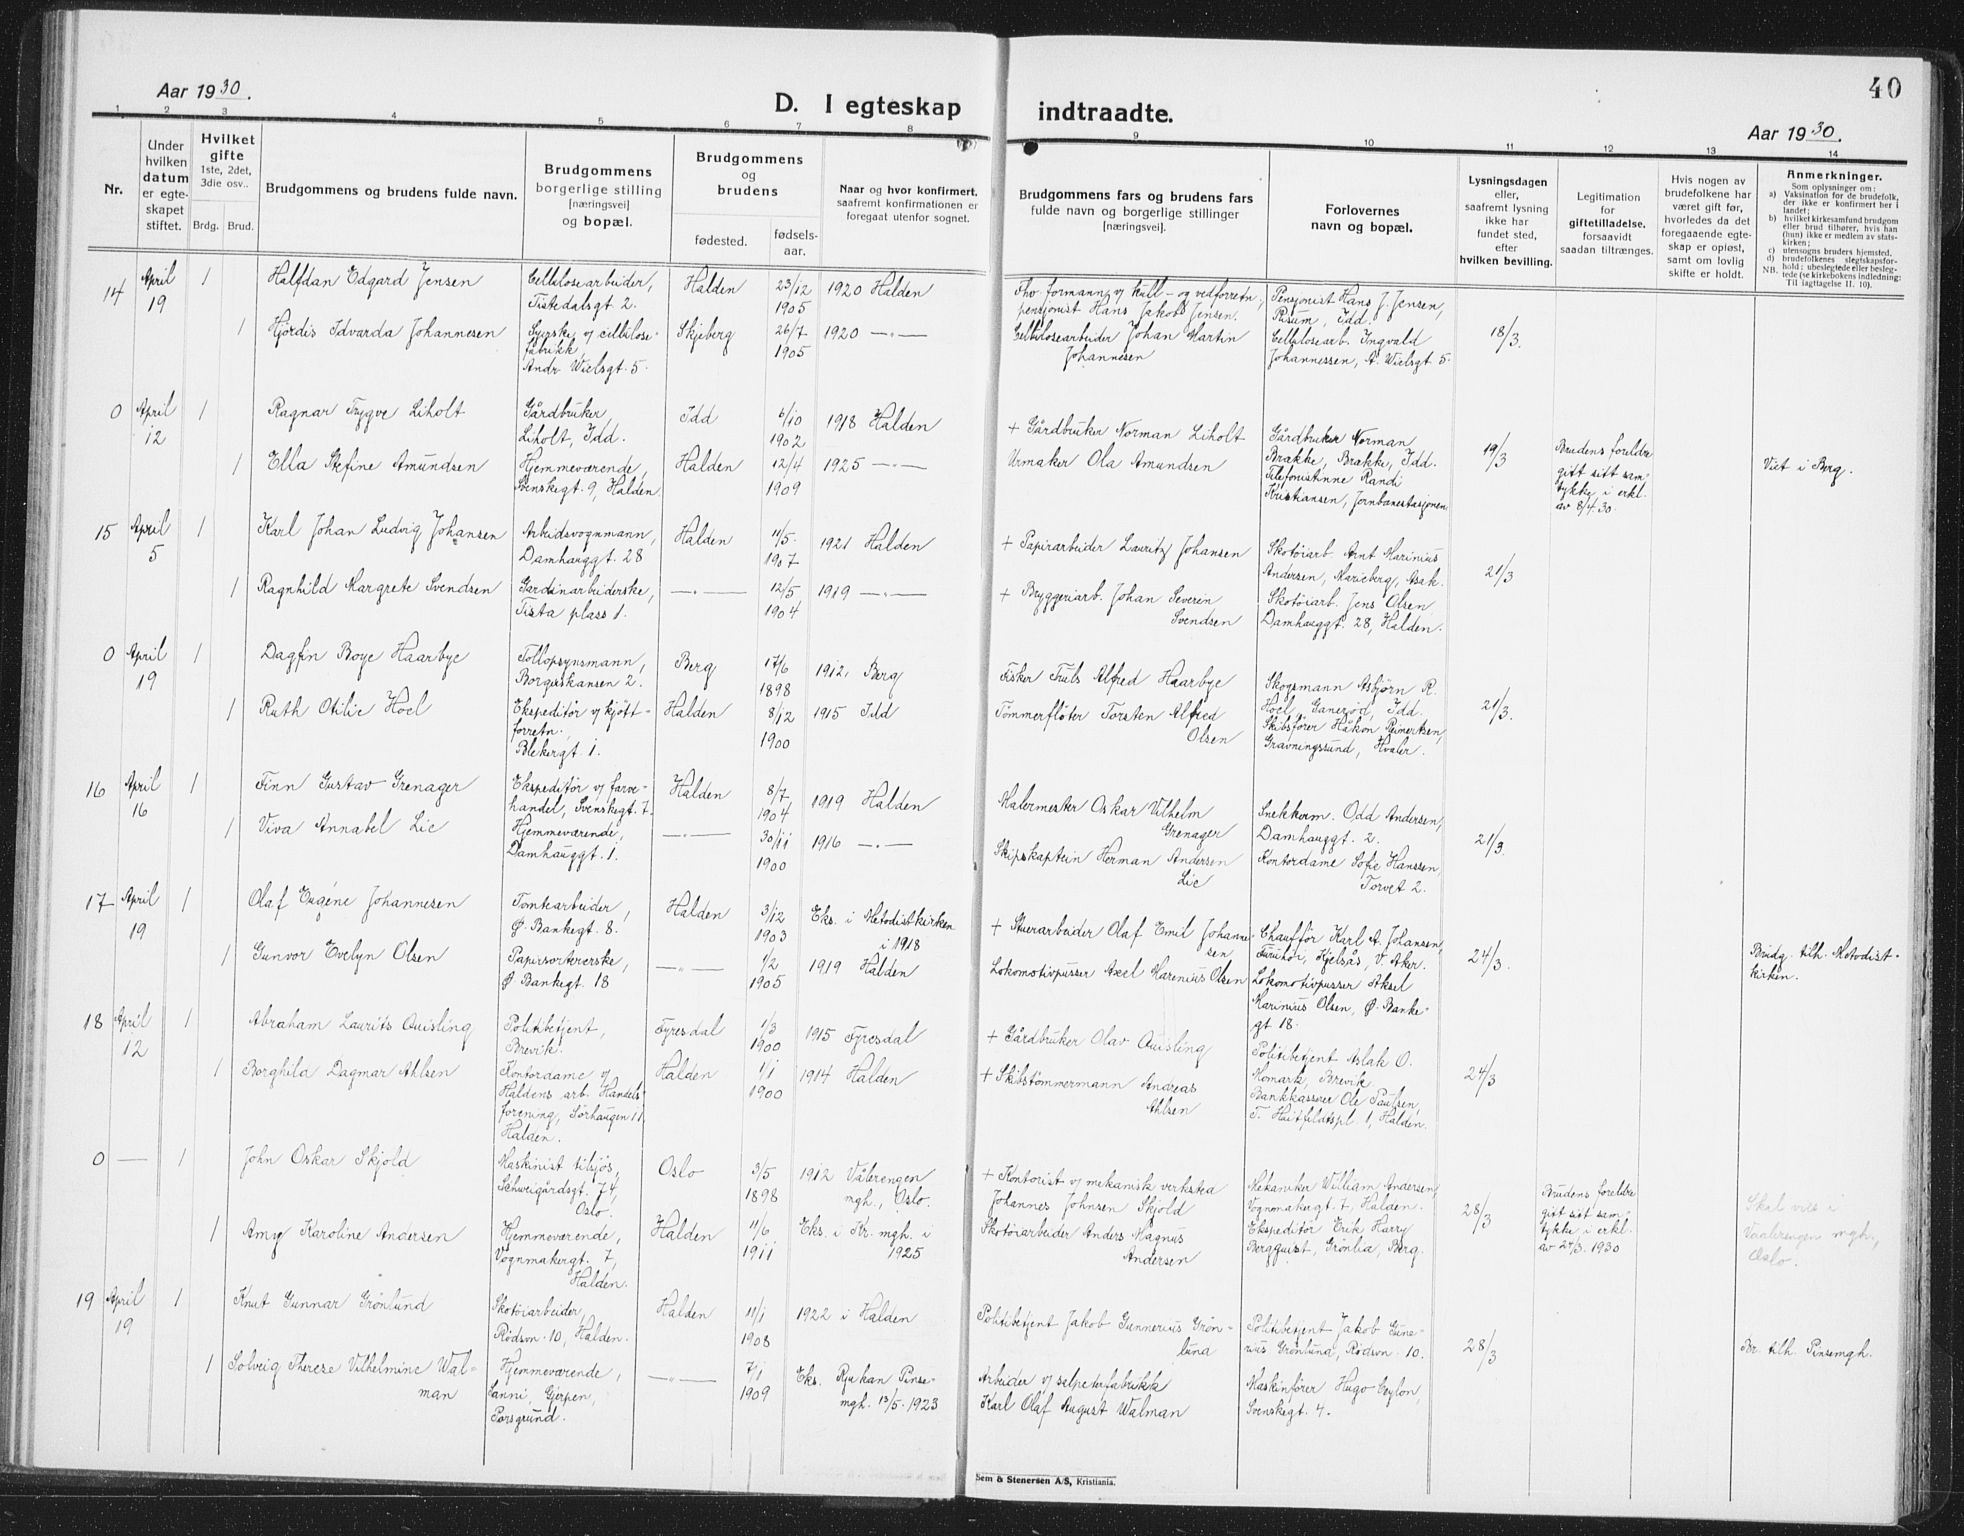 Aar 1930.
D. I egteskap indtraadte.
40
Aar 1930.
1 2 3 4 5 6 7 8 9 10 11 12 13 14
Nr.
Under
hvilken
datum
er egte-
skapet
stiftet.
Hvilket
gifte
1ste, 2det,
3die osv..
Brdg. Brud.
Brudgommens og brudens fulde navn.
Brudgommens
borgerlige stilling
[næringsvei]
og bopæl.
Brudgommens
og
brudens
fødested.
fødsels-
aar.
Naar og hvor konfirmert,
saafremt konfirmationen er
foregaat utenfor sognet.
Brudgommens fars og brudens fars
fulde navn og borgerlige stillinger
[næringsvei].
Forlovernes
navn og bopæl.
Lysningsdagen
eller,
saafremt lysning
ikke har
fundet sted,
efter
hvilken bevilling.
Legitimation
for
giftetilladelse,
forsaavidt
saadan tiltrænges.
Hvis nogen av
brudefolkene har
været gift før,
hvorledes da det
foregaaende egte-
skap er opløst,
samt om lovlig
skifte er holdt.
Anmerkninger.
Som oplysninger om:
a) Vaksination for de brudefolk,
der ikke er konfirmert her i
landet;
b) hvilket kirkesamfund brudgom
eller brud tilhører, hvis han
(hun) ikke er medlem av stats-
kirken;
c) utensogns bruders hjemsted.
d) brudefolkenes slegtskapsfor-
hold: ubeslegtede eller besleg-
NB. tede (se kirkebokens indledning:
Til iagttagelse 11. 10).
14 April 19 1 Halfdan Edgard Jensen
Cellulosearbeider,
Tistedalsgt 2.
Halden 23/12 1905 1920 Halden
Fhv formann v/ kull- og vedforretn,
pensjonist Hans Jakob Jensen.
Pensjonist Hans J. Jensen,
Risum, Idd.
1 Hjördis Edvarda Johannesen
Syerske v/ cellulose-
fabrikk
Andr Wielsgt. 5.
Skjeberg 26/7 1905 1920 —"—
Cellulosearbeider Johan Martin
Johannesen
Cellulosearb. Ingvald
Johannessen, A. Wielsgt 5.
18/3.
0 April 12 1 Ragnar Trygve Liholt
Gårdbruker
Liholt, Idd.
Idd 6/10 1902 1918 Halden
+ Gårdbruker Norman Liholt
Gårdbruker Norman
Brække, Brække, Idd.
1 Ella Stefine Amundsen
Hjemmeværende,
Svenskegt. 9, Halden.
Halden 12/4 1909 1925 —"—
Urmaker Ola Amundsen
Telefonistinne Randi
Kristiansen, Jernbanestasjonen
19/3
Brudens foreldre
gitt sitt sam-
tykke i erkl.
av 8/4.30.
Viet i Berg.
15 April 5 1 Karl Johan Ludvig Johansen
Arbeidsvognmann,
Damhauggt. 28
Halden 11/5. 1907 1921 Halden
+ Papirarbeider Lauritz Johansen
Skotöiarb. Arnt Marinius
Andersen, Marieberg, Asak.
1 Ragnhild Margrete Svendsen
Gardinarbeiderske,
Tista plass 1.
—"— 12/5 1904 1919 —"—
+ Bryggeriarb. Johan Severin
Svendsen
Skotöiarb. Jens Olsen
Damhauggt. 28, Halden.
21/3
0 April 19 1 Dagfin Boye Haarbye
Tollopsynsmann,
Borgerskansen 2.
Berg 17/6 1898 1912, Berg
Fisker Truls Alfred Haarbye
Skogsmann Asbjörn R.
Hoel, Ganeröd, Idd.
1 Ruth Otilie Hoel
Ekspeditör v/ kjött-
forretn.,
Blekergt. 1.
Halden 8/12 1900 1915 Idd
Tömmerflöter Torsten Alfred
Olsen
Skibsförer Håkon Reinertsen,
Gravningssund, Hvaler.
21/3.
16 April 16 1 Finn Gustav Grenager
Ekspeditör v/ farve-
handel, Svenskegt. 7.
Halden 8/7 1904 1919 Halden
Malermester Oskar Vilhelm
Grenager
Snekkerm. Odd Andersen,
Damhauggt. 2.
1 Viva Annabel Lie
Hjemmeværende,
Damhauggt. 1.
—"— 30/11 1900 1916 —"—
Skipskaptein Herman Andersen
Lie
Kontordame Sofie Hanssen,
Torvet 2.
21/3.
17 April 19 1 Olaf Eugéne Johannesen
Tomtearbeider,
Ø. Bankegt. 8.
Halden 3/12 1903 Eks. i Metodistkirken
i 1918
+ Stuerarbeider Olaf Emil Johanne-
sen
Chaufför Karl A. Johansen,
Furuhöi, Kjelsås, V. Aker.
1 Gunvor Evelyn Olsen
Papirsortererske,
Ø. Bankegt. 18
—"— 1/2 1905 1919 Halden
Lokomotivpusser Axel Marenius Olsen
Lokomotivpusser Aksel
Marinius Olsen, Ø. Banke-
gt 18.
24/3.
Brudg. tilh. Metodist-
kirken.
18 April 12 1 Abraham Laurits Quisling
Politibetjent,
Brevik.
Fyresdal 1/3 1900 1915 Fyresdal
+ Gårdbruker Olav Quisling
Politibetjent Aslak O.
Momark, Brevik.
1 Borghild Dagmar Ahlsen
Kontordame v/
Haldens arb. Handels-
forening, Sörhaugen 11
Halden.
Halden 1/1 1900 1914 Halden
+ Skibstömmermann Andreas
Ahlsen
Bankkasserer Ole Paulsen,
T. Huitfeldtspl. 1, Halden.
24/3
0 — 1 John Oskar Skjold
Maskinist tilsjös,
Schweigårdsgt. 74,
Oslo.
Oslo 3/5 1898 1912 Vålerengen
mgh., Oslo.
+ Kontorist v/ mekanisk verksted
Johannes Johnsen Skjold
Mekaniker William Andersen,
Vognmakergt. 7, Halden.
1 Amy Karoline Andersen
Hjemmeværende,
Vognmakergt. 7,
Halden.
Halden 11/6 1911 Eks. i Kr. mgh. i
1925
Skotöiarbeider Anders Magnus
Andersen
Ekspeditör Erik Harry
Bergquist, Grönlia, Berg.
28/3
Brudens foreldre
gitt sitt sam-
tykke i erkl.
av 24/3. 1930
Skal vies i
Vaalerengen mgh.,
Oslo.
19 April 19 1 Knut Gunnar Grönlund
Skotöiarbeider,
Rödsv. 10, Halden.
Halden 11/1 1908 1922 i Halden
Politibetjent Jakob Gunnerius Grön-
lund
Politibetjent Jakob Gune-
rius Grönlund, Rödsv. 10.
1 Solveig Therese Vilhelmine Wal-
man
Hjemmeværende,
Sanni, Gjerpen,
Porsgrund.
—"— 7/1 1909 Eks. Rjukan Pinse-
mgh. 13/5. 1923
Arbeider v/ salpeterfabrikk
Karl Olaf August Walman
Maskinförer Hugo Ceylon,
Svenskegt. 4.
28/3
Br. tilh. Pinsemgh.
Sem & Stenersen A/S, Kristiania.